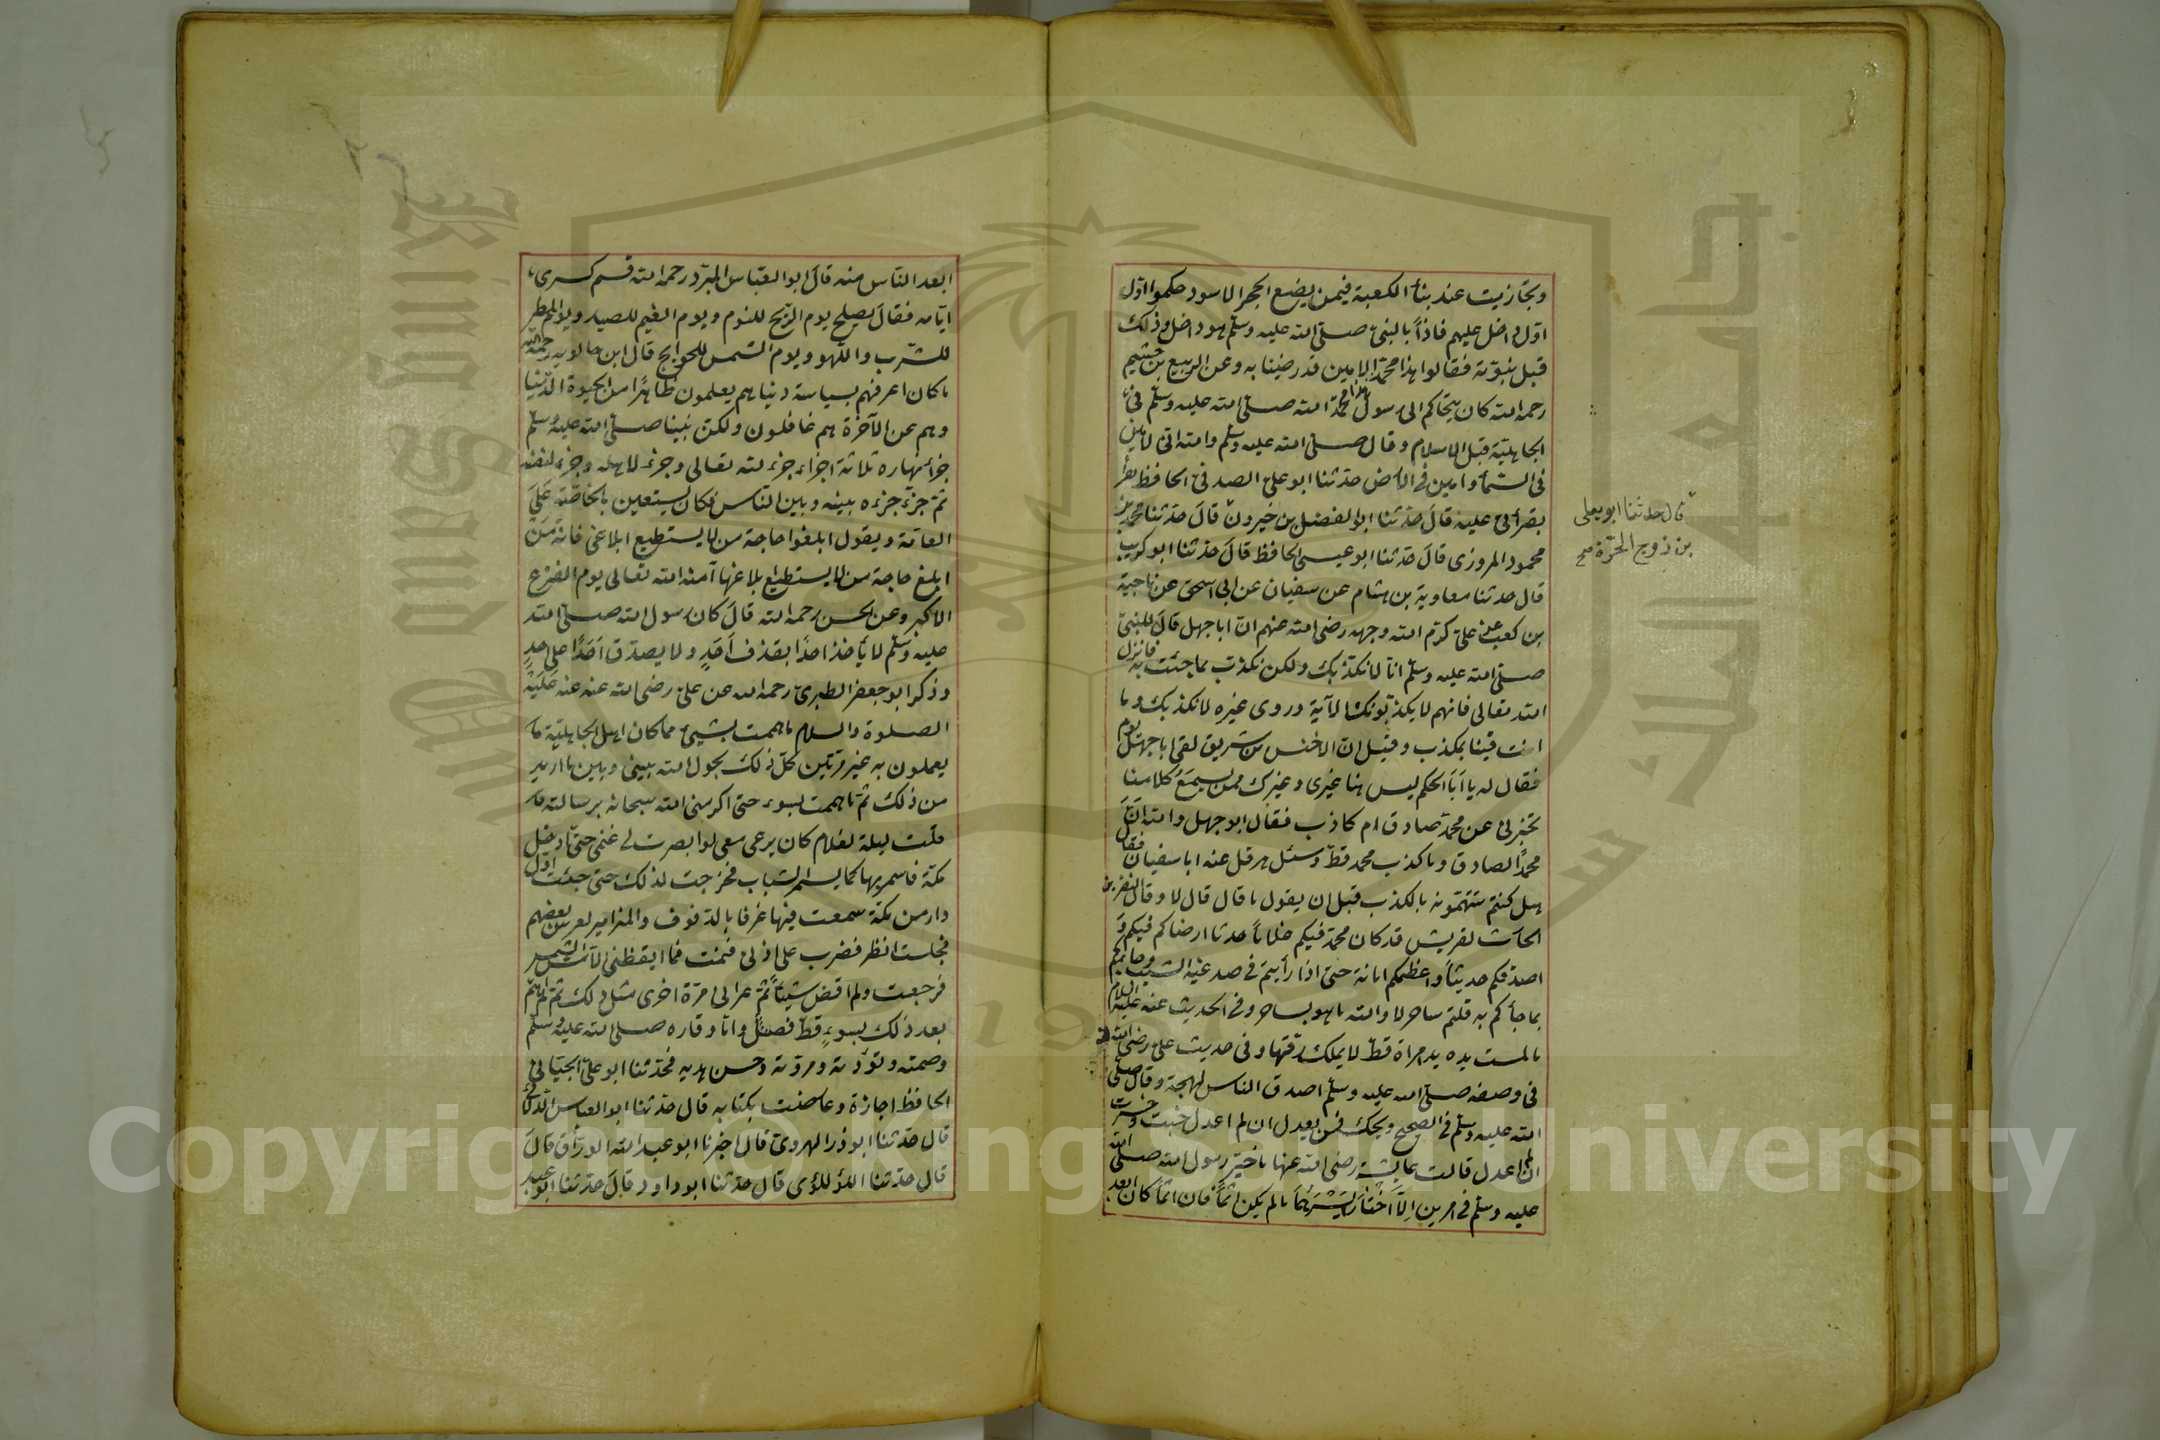 وتحازيت عند بناء الكعبة فيمن يضع الحجر الاسود حكموا اوّل
اوّل داخل عليهم فاذا بالنبىّ صلّى الله عليه وسلّم هو داخل وذلك
قبل نبوّته فقالوا هذا محمّد الامين قد رضينا به وعن الربيع بن خثيم
رحمه الله كان يتحاكم الى رسول الله محمّد صلّى الله عليه وسلّم فى
الجاهليّة قبل الاسلام وقال صلّى الله عليه وسلّم والله انّى لامين
فى السّماء وامين فى الارض حدّثنا ابو علىّ الصدفىّ الحافظ بقرا
بقرأتى عليه قال حدّثنا ابو الفضل بن خيرون قال حدّثنا محمّد بن
قال حدثنا ابو يعلى
بن زوج الحرّة صح
محمود المروزى قال حدّثنا ابو عيسى الحافظ قال حدّثنا ابو كريب
قال حدثنا معاوية بن هشام عن سفيان عن ابى اسحق عن ناجية
بن كعب عن علىّ كرّم الله وجهه رضى الله عنهم انّ ابا جهل قال للنبىّ
صلّى الله عليه وسلّم انّا لا نكذّبك ولكن نكذّب بما جئت به فانزل
الله تعالى فانهم لا يكذّبونك الآية وروى غيره لا نكذبك وما
انت فينا بمكذب وقيل انّ الاخنس بن شريق لقى ابا جهل يوم
فقال له يا ابا الحكم ليس هنا غيرى وغيرك ممن يسمع كلامنا
تخبرنى عن محمّد صادق ام كاذب فقال ابو جهل والله انّ
محمّدًا لصادق وما كذب محمد قطّ وسئل هرقل عنه ابا سفيان فقال
هل كنتم تتّهمونه بالكذب قبل ان يقول ما قال قال لا وقال النضر بن
الحارث لقريش قد كان محمّد فيكم غلاماً حدثا ارضاكم فيكم و
اصدقكم حديثاً واعظمكم امانة حتى اذا رأيتم فى صدغيه الشيب وجاءكم
بما جاءكم به قلتم ساحر لا والله ما هو بساحر وفى الحديث عنه عليه السلام
ما لمست يده يد امرأة قطّ لا يملك رقّها وفى حديث علىّ رضى الله عنه
فى وصفه صلّى الله عليه وسلّم اصدق الناس لهجة وقال صلى
الله عليه وسلّم فى الصحيح ويحك فمن يعدل ان لم اعدل خبت وخسرت
ان لم اعدل قالت عايشة رضى الله عنها ما خيّر رسول الله صلّى الله
عليه وسلّم فى امرين الّا اختار ايسرهما ما لم يكن اثمًا فان اثمًا كان ابعد
ابعد النّاس منه قال ابو العبّاس المبرّد رحمه الله قسم كسرى
ايّامه فقال يصلح يوم الريح للنوم ويوم الغيم للصيد ويوم المطر
للشّرب واللّهو ويوم الشمس للحوايج قال ابن خالويه رحمه الله
ما كان اعرفهم بسياسة دنياهم يعلمون ظاهرًا من الحيوة الدّنيا
وهم عن الآخرة هم غافلون ولكن نبينا صلّى الله عليه وسلّم
جزّأ نهاره ثلاثة اجزاء جزء لله تعالى وجزء لاهله وجزء لنفسه
ثمّ جزّء جزءه بينه وبين النّاس فكان يستعين بالخاصّة على
العامّة ويقول ابلغوا حاجة من لا يستطيع ابلاغى فانه من
ابلغ حاجة من لا يستطيع بلاغها آمنه الله تعالى يوم الفزع
الاكبر وعن الحسن رحمه الله قال كان رسول الله صلّى الله
عليه وسلّم لا يأخذ احدًا بقذف احد ولا يصدّق احدًا على احد
وذكر ابو جعفر الطبرىّ رحمه الله عن علىّ رضى الله عنه عنه عليه
الصلوة والسلام ما هممت بشىء مما كان اهل الجاهليّة ما
يعملون به غير مرّتين كلّ ذلك يحول الله بينى وبين ما اريد
من ذلك ثمّ ما هممت بسوء حتى اكرمنى الله سبحانه برسالته ما
قلت ليلة لغلام كان يرعى معى لو ابصرت لى غنمى حتّى ادخل
مكّة فاسمر بها كما يسمر الشباب فخرجت لذلك حتى جئت اوّل
دار من مكّة سمعت فيها عزفا بالدّفوف والمزامير لعرس بعضهم
فجلست انظر فضرب على اذنى فنمت فما ايقظنى الّا مسّ الشمس
فرجعت ولم اقض شيئاً ثمّ عرانى مرّة اخرى مثل ذلك ثمّ لم اهمّ
بعد ذلك بسوءٍ قطّ فصل وامّا وقاره صلّى الله عليه وسلّم
وصمته وتؤدته ومروّته وحسن هديه فحدّثنا ابو علىّ الجيّانىّ
الحافظ اجازة وعارضت بكتابه قال حدّثنا ابو العباس الدّلائى
قال حدّثنا ابو ذر الهروىّ قال اخبرنا ابو عبد الله الورّاق قال
قال حدّثنا اللؤلؤى قال حدّثنا ابو داود قال حدّثنا ابو عبد